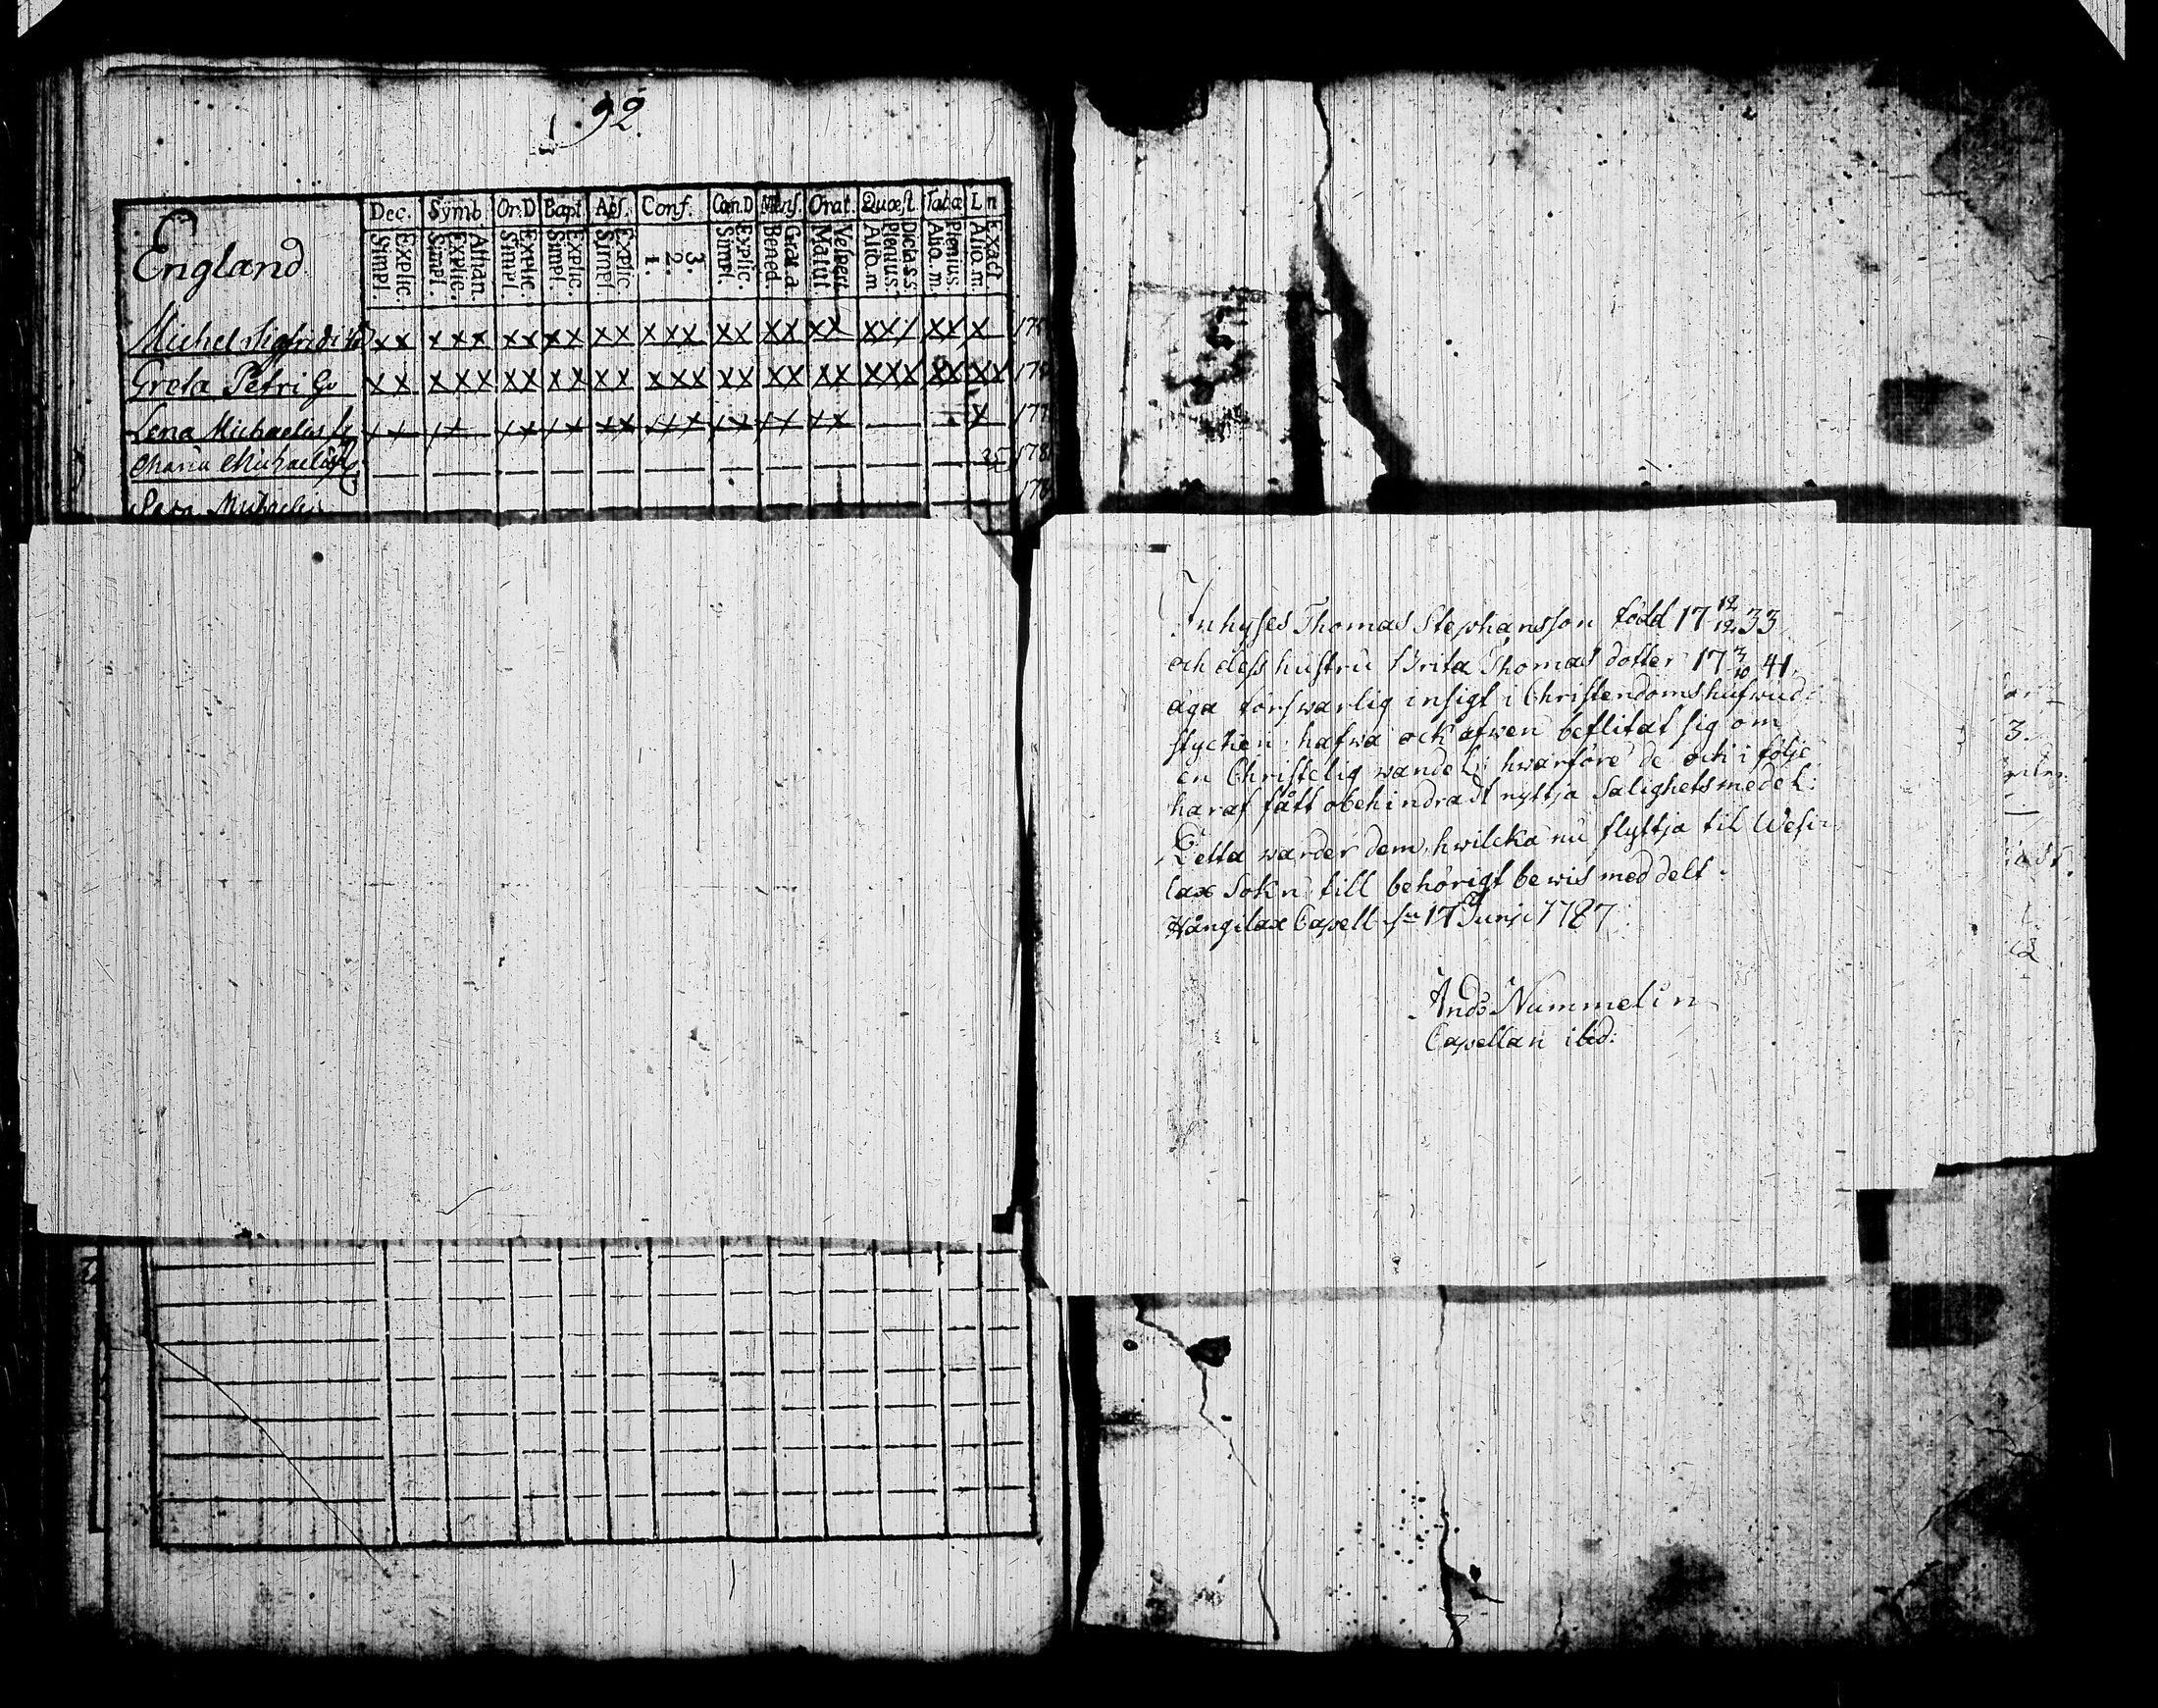 92.
Dec. Symb. Or.D Bapt. Abs. Conf. Cœn.D Mens. Orat. Quæst. Tabæ L n
England
Explic. Simpl. Athan. Explic. Simpl. Explic. Simpl. Explic. Simpl. Explic. Simpl. 3. 2. 1. Explic. Simpl. Grat.a. Bened. Vespert. Matut. Dicta s.s. Plenius. Alio.m Plenius. Alio.m. Exact Alio.m.
Michel Sigfridi x x x x x x x x x x x x x x x x x x x x x x x x x
Greta Petri x x x x x x x x x x x x x x x x x x x x x x x x x x
Lena Michaelis
Maria Michaelis 178
Michaelis 178
Inhyses Thomas Stephansson född 17 12/12 33
och dess hustru Brita Thomas dotter 17 3/10 41,
äga försvarlig insigt i Christendoms hufwud
stycken: hafwa ock äfwen beflitat sig om
en Christelig wandel: hwarföre de ock i följe
häraf fått obehindradt nyttja Salighetsmedel:
Detta warder dem, hwilcka nu flyttja til Wesi-
lax Sokn till behörigt bewis meddelt.
Kångilax Capell 17 Junii 1787
And: Nummelin
Capellan ibid:
3.